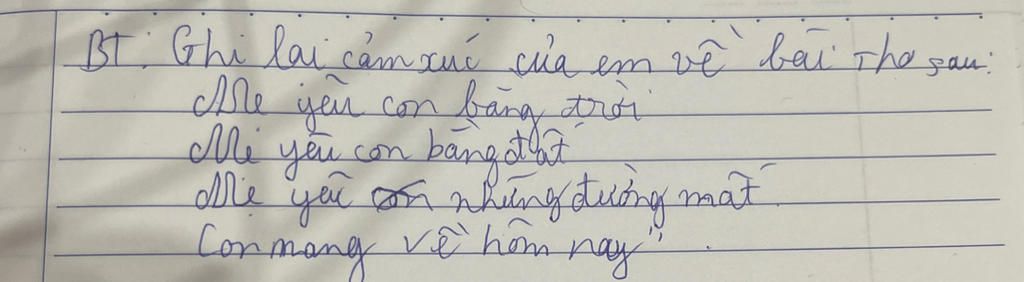 BT: Ghi lại cảm xúc của em về bài thơ sau:
Mẹ yêu con bằng trời
Mẹ yêu con bằng đất
Mẹ yêu con những đường mật
Con mang về hôm nay".